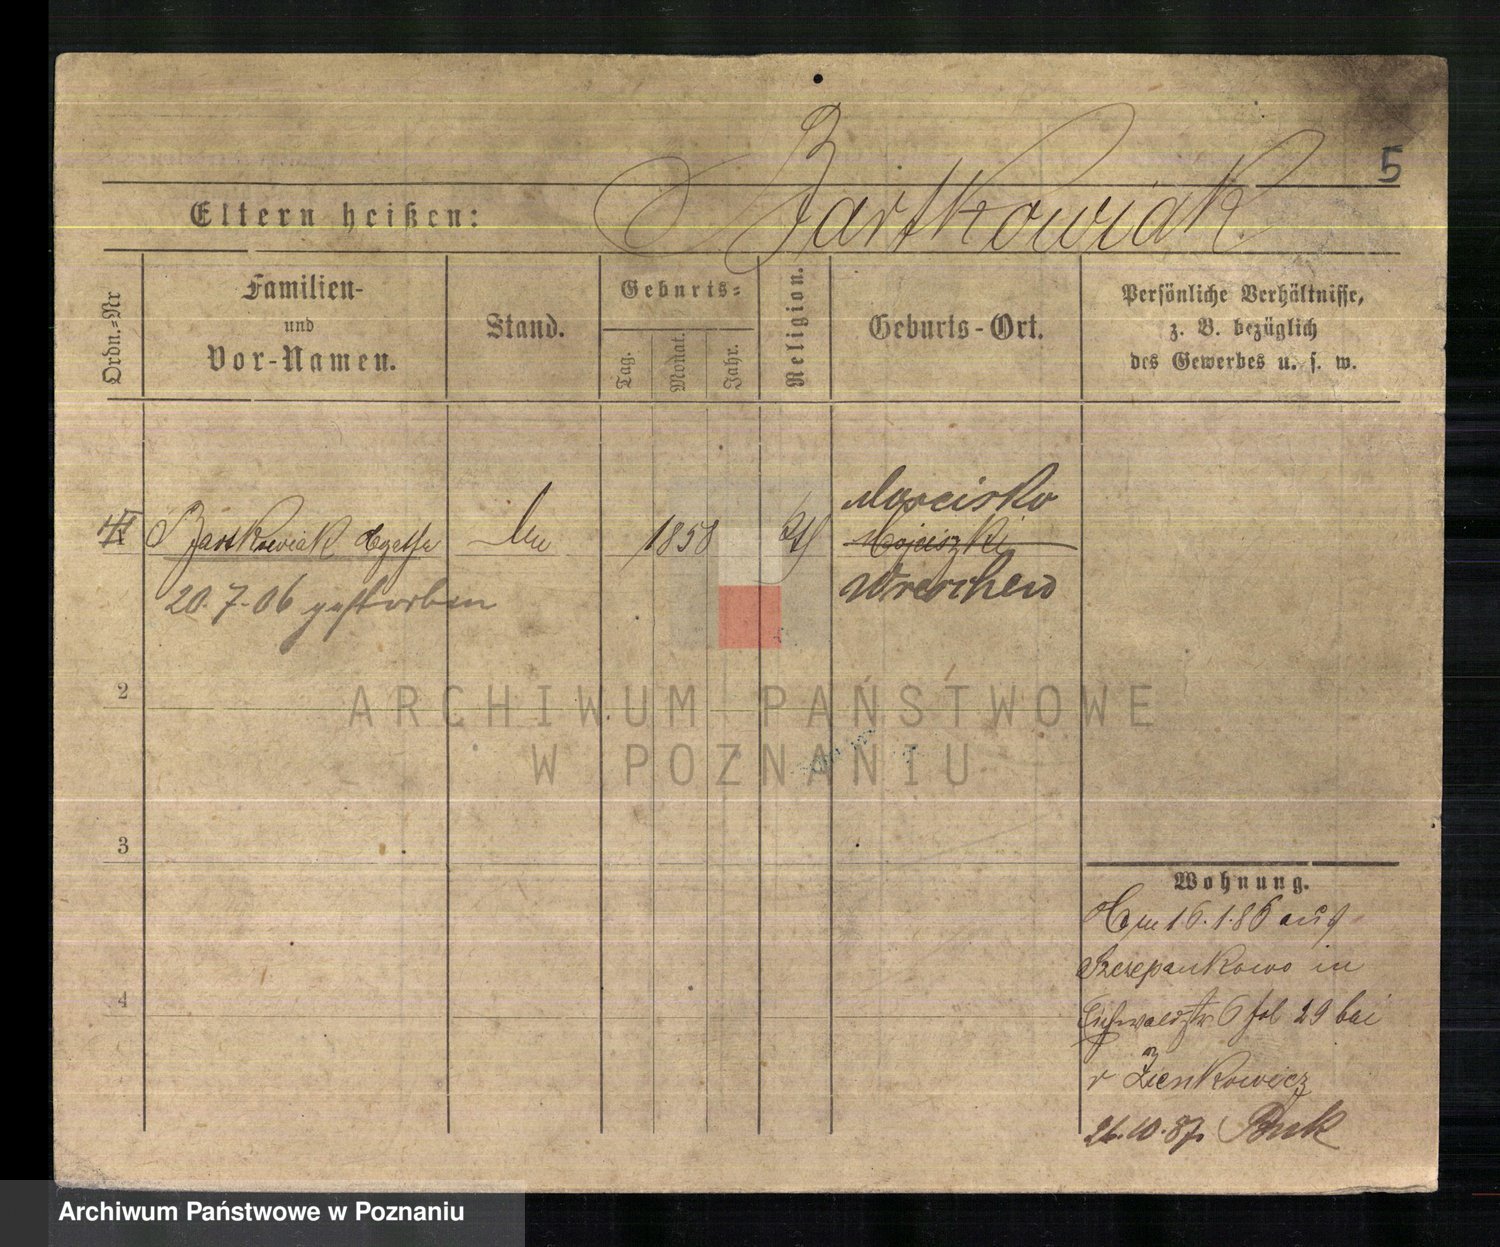 5
Eltern heißen: Bartkowiak
Ordn.-Nr
Familien-
und
Vor-Namen.
Stand.
Geburts-
Tag.
Monat.
Jahr.
Religion.
Geburts-Ort.
Persönliche Verhältnisse,
z. B. bezüglich
des Gewerbes u. s. w.
Bartkowiak Agathe
1858
kth
Wreschen
20.7.06 gestorben
2
3
4
ARCHIWUM PAŃSTWOWE
W POZNANIU
Wohnung.
Am 16.1.86 aus
Szczepankowo in
Eichwaldstr 6 fol 29 bei
r Zienkowicz
26.10.87 Buk
Archiwum Państwowe w Poznaniu